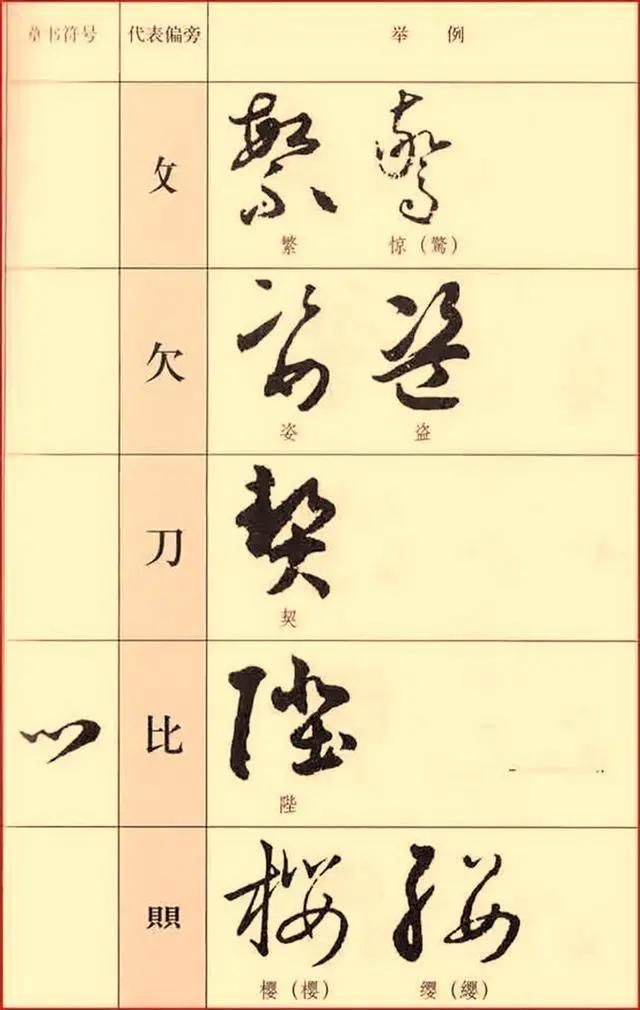 草书符号 代表偏旁 举例
攵
繁 惊（驚）
欠
姿 盗
刀
契
比
陛
賏
樱（櫻） 缨（纓）